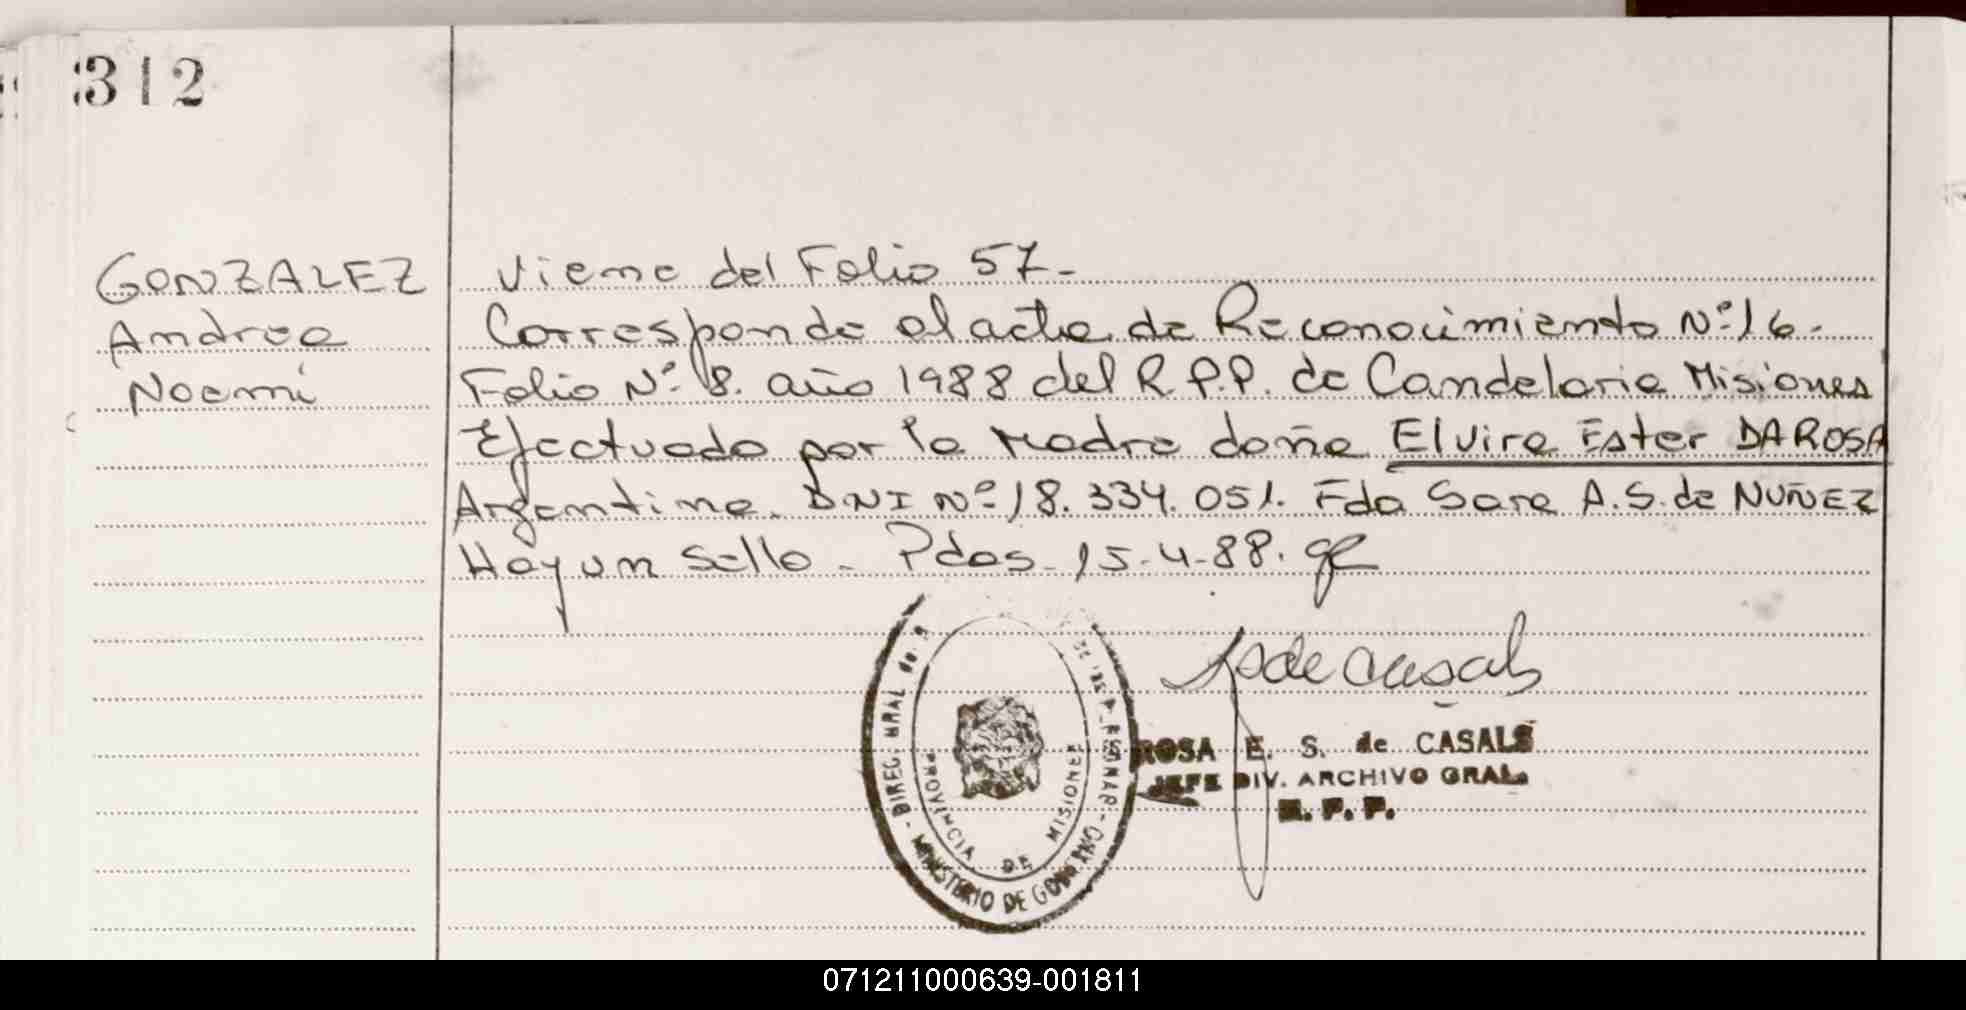 312
GONZALEZ
Andrea
Noemi
Viene del Folio 57-
Corresponde al acta de Reconocimiento Nº 16-
Folio Nº 8. año 1988 del R.P.P. de Candelaria Misiones
Efectuado por la Madre doña Elvira Ester DA ROSA
Argentina. DNI Nº 18.334.051. Fdo Sara A.S. de NUÑEZ
Hay un Sello - Pdas. 15-4-88.
DIREC. GRAL de
MINISTERIO DE GOBIERNO
PROVINCIA DE MISIONES
ROSA E. S. de CASALS
JEFE DIV. ARCHIVO GRAL.
R. P. P.
071211000639-001811